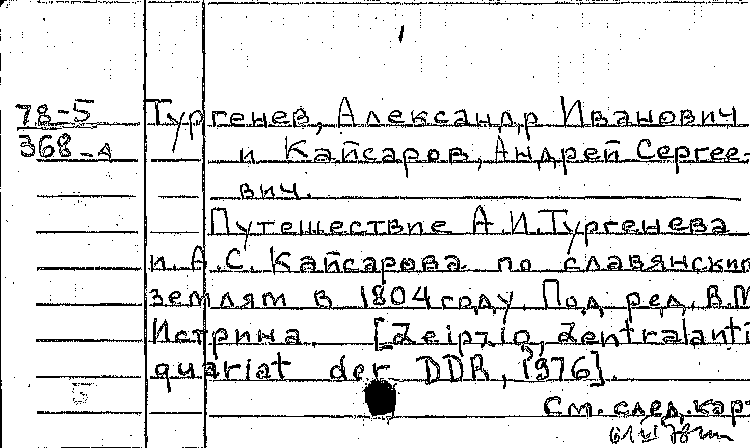 78-5
368-А
Тургенев, Александр Иванович
и Кайсаров, Андрей Сергее-
вич.
Путешествие А.И.Тургенева
и А.С. Кайсарова по славянским
землям в 1804 году. Под ред. В.М.
Истрина. [Leipzig, Zentralanti
quariat der DDR, 1976].
См. след. карт